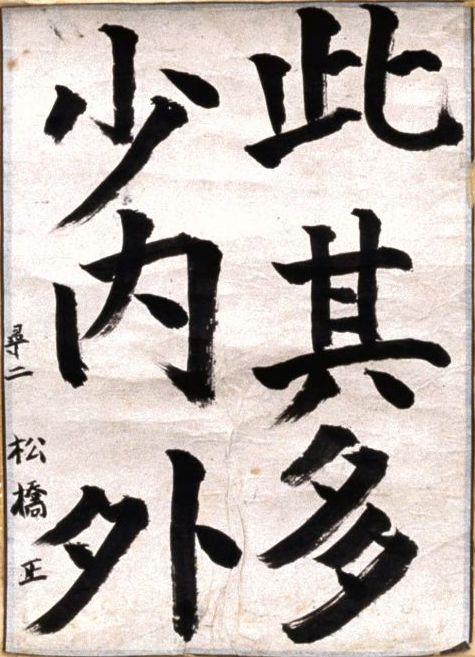 此其多
少内外
尋二 松橋正